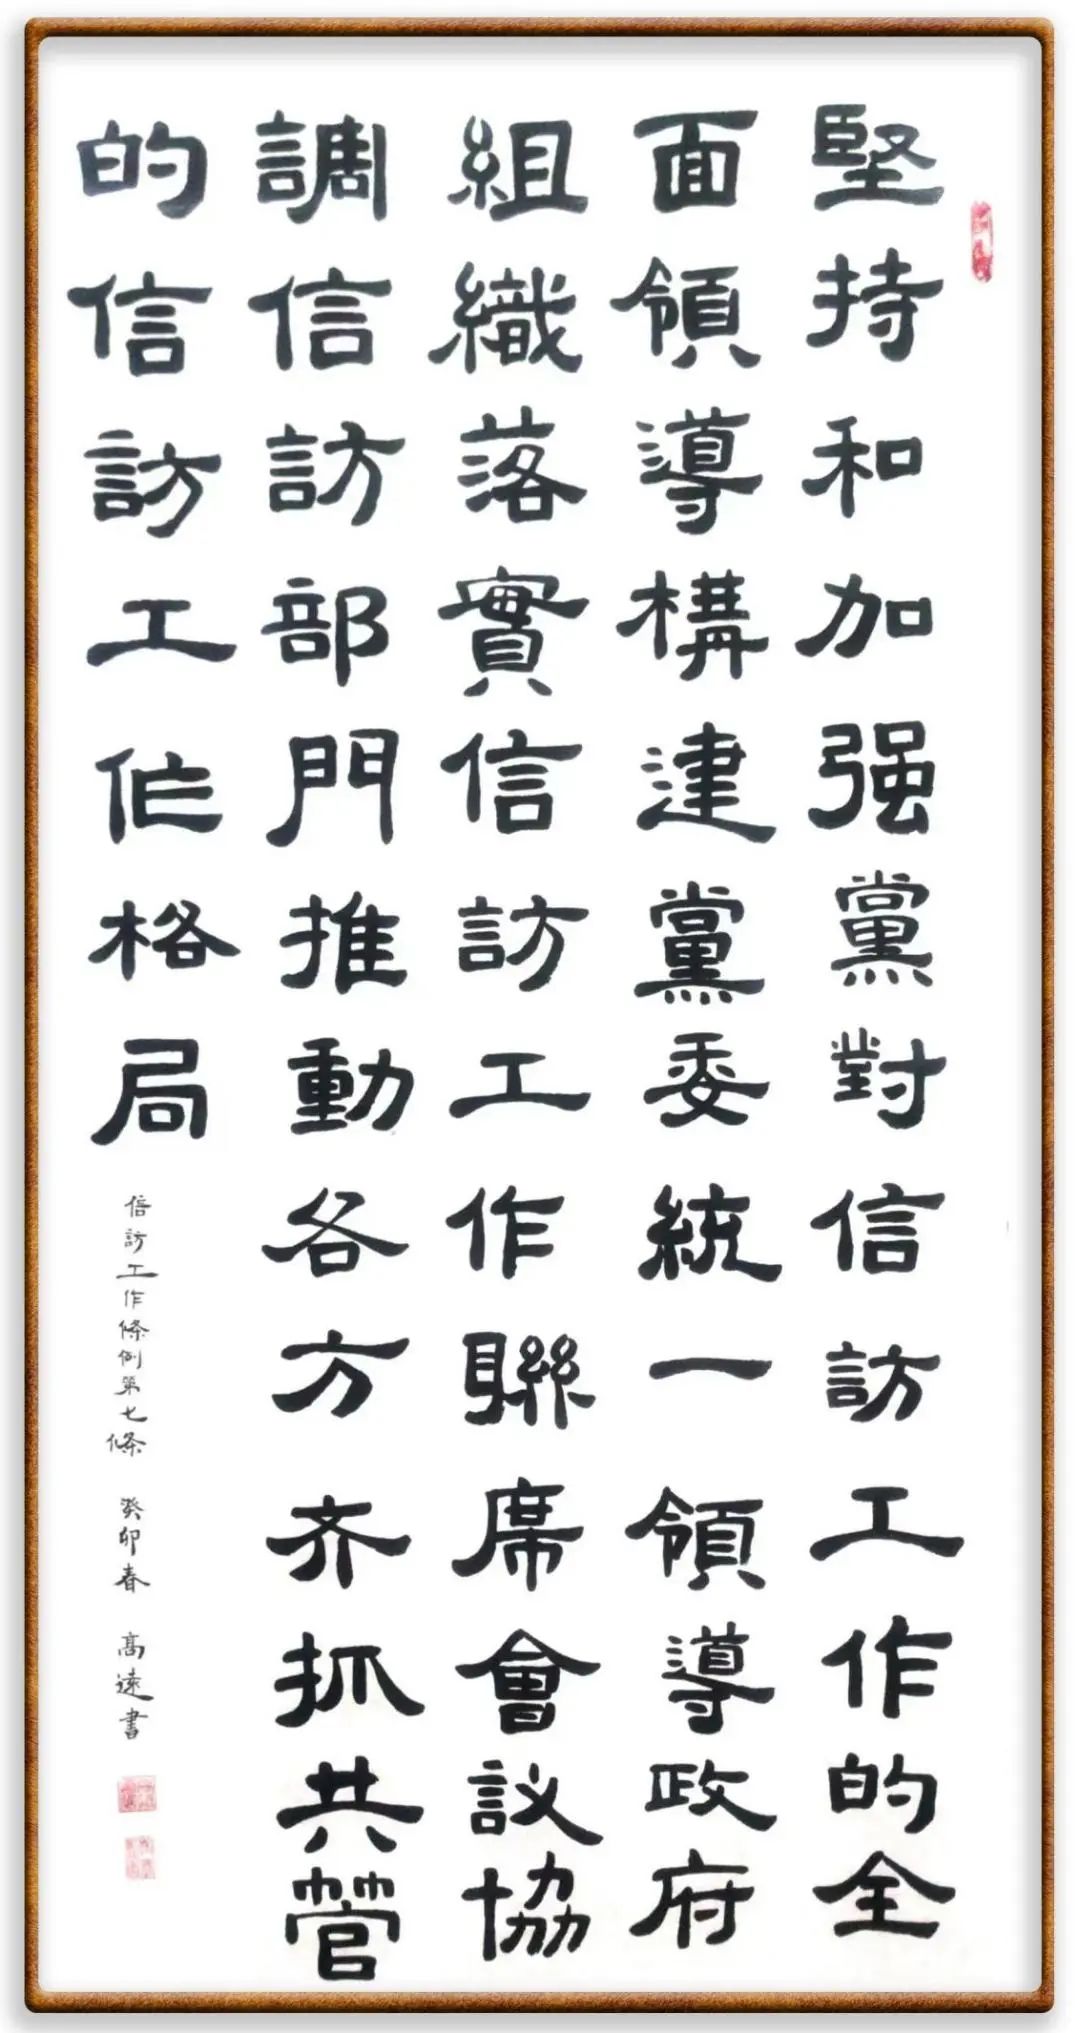 堅持和加强黨對信訪工作的全
面領導構建黨委統一領導政府
組織落實信訪工作聯席會議協
調信訪部門推動各方齐抓共管
的信訪工作格局
信訪工作條例第七條 癸卯春 高遠書